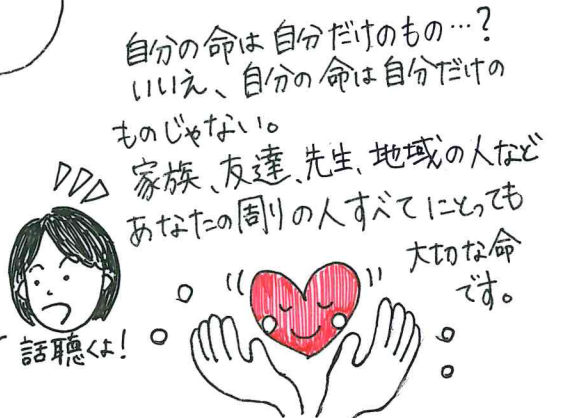 自分の命は自分だけのもの…?
いいえ、自分の命は自分だけの
ものじゃない。
家族、友達、先生、地域の人など
あなたの周りの人すべてにとっても
大切な命
です。
話聴くよ!